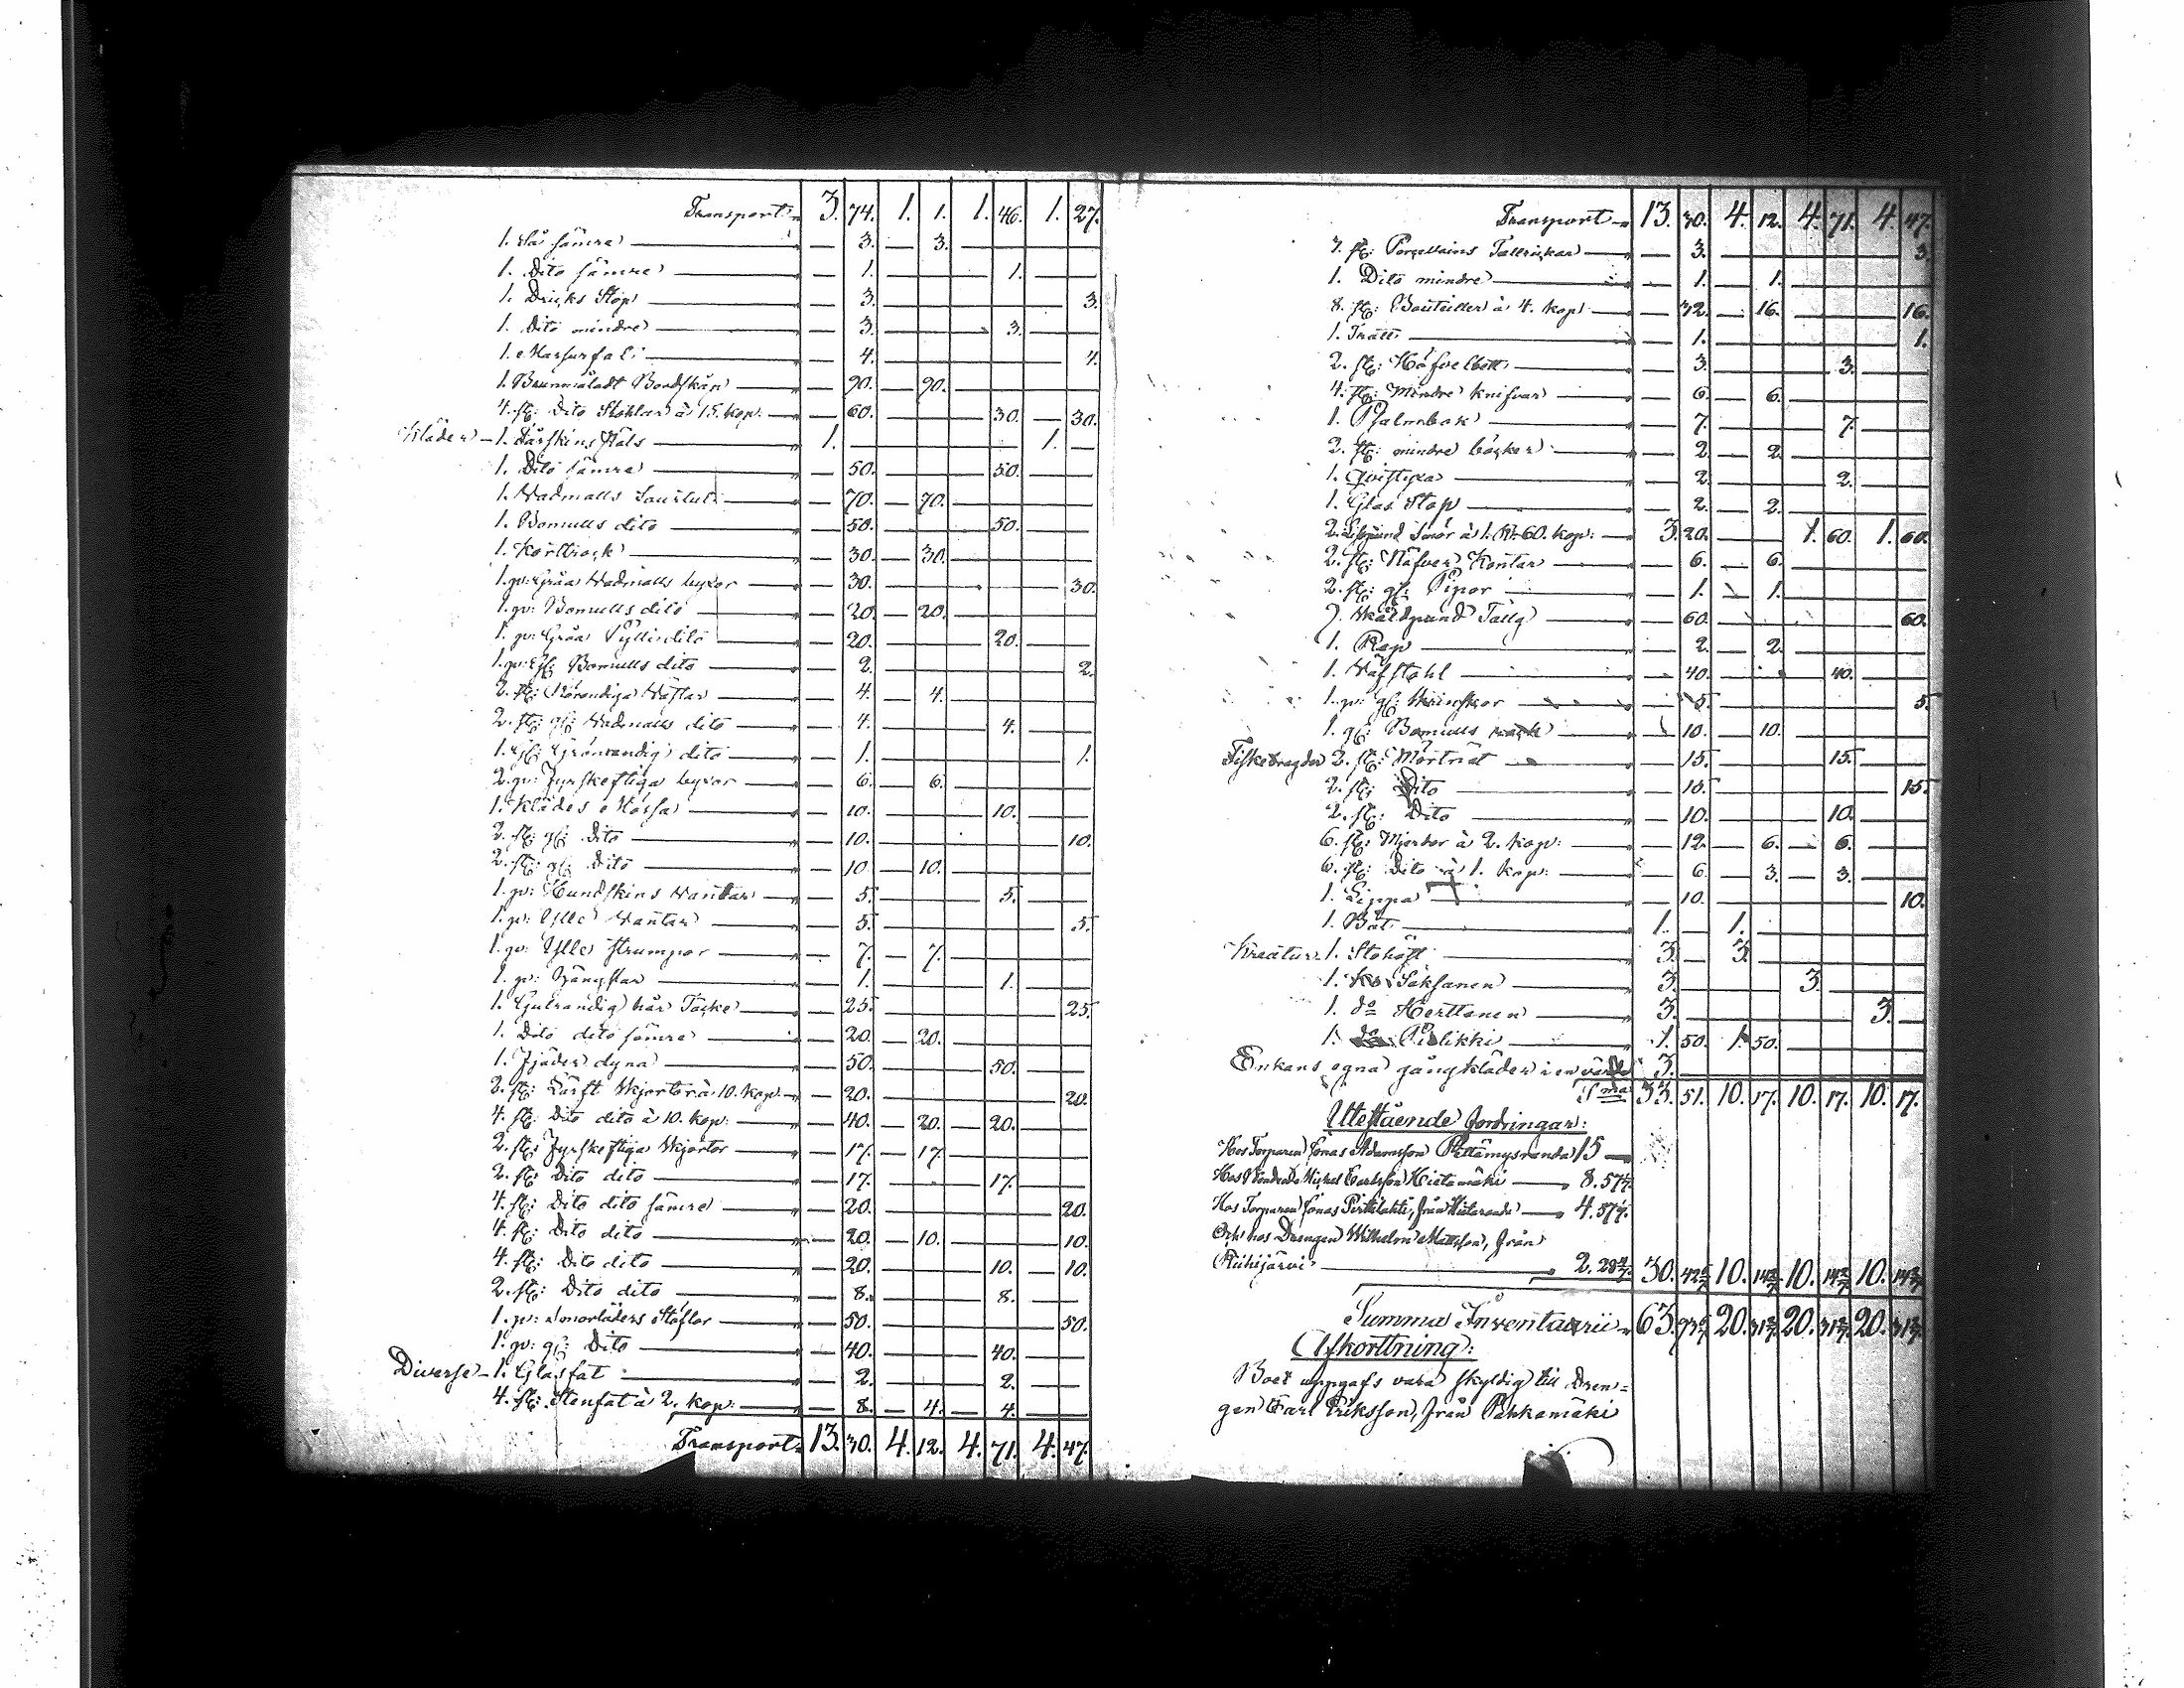 Transport 3. 74. 1. 1. 1. 46. 1. 27.
1. Så sämre — 3. — 3. —
1. Dito sämre — 1. — 1. —
1. Dricks Stop — 3. — 3.
1. Dito mindre — 3. — 3. —
1. — 4. — 4.
1. Brunmåladt Bordskåp — 90. — 90. —
4. st: Dito Stohlar à 15. kop: — 60. — 30. — 30.
Kläder — 1. Fårskins Päls — 1. — 1. —
1. Dito sämre — 50. — 50. —
1. Wadmalls Surtut — 70. — 70. —
1. Bomulls dito — 50. — 50. —
1. Kortrock — 30. — 30. —
1. pr: Gråa Wadmalls byxor — 30. — 30.
1. pr: Bomulls dito — 20. — 20. —
1. pr: Gråa dito — 20. — 20. —
1. pr: gl: Bomulls dito — 2. — 2.
2. st: Rörandiga Västar — 4. — 4. —
2. st: gl: Wadmalls dito — 4. — 4. —
1. gl: Grönrandig dito — 1. — 1.
2. pr: Fyrskeftiga byxor — 6. — 6. —
1. Klädes Mössa — 10. — 10. —
2. st: gl: Dito — 10. — 10.
2. st: gl: Dito — 10. — 10. —
1. pr: Hundskins Wantar — 5. — 5. —
1. pr: Ylle Wantar — 5. — 5.
1. pr: Ylle strumpor — 7. — 7. —
1. pr: — 1. — 1. —
1. Gulrandig hår Täcke — 25. — 25.
1. Dito dito sämre — 20. — 20. —
1. Fjäder dyna — 50. — 50. —
2. st: Lärft Skjortor à 10. kop — 20. — 20.
4. st: Dito dito à 10. kop: — 40. — 20. — 20. —
2. st: Fyrskeftiga Skjortor — 17. — 17. —
2. st: Dito dito — 17. — 17. —
4. st: Dito dito sämre — 20. — 20.
4. st: Dito dito — 20. — 10. — 10.
4. st: Dito dito — 20. — 10. — 10.
2. st: Dito dito — 8. — 8. —
1. pr: Smorläders Stöflor — 50. — 50.
1. pr: gl: Dito — 40. — 40. —
Diverse — 1. Glasfat — 2. — 2. —
4. st: Stenfat à 2. kop: — 8. — 4. — 4. —
Transport 13. 30. 4. 12. 4. 71. 4. 47.
Transport 13. 30. 4. 12. 4. 71. 4. 47.
3. st: Porcellains Tallrickar — 3. — 3.
1. Dito mindre — 1. — 1. —
8. st: Bouteiller à 4. kop — 32. — 16. — 16.
1. Tratt — 1. — 1.
2. st: — 3. — 3. —
4. st: Mindre knifvar — 6. — 6. —
1. Psalmbok — 7. — 7. —
2. st: mindre böcker — 2. — 2. —
1. — 2. — 2. —
1. Glas Stop — 2. — 2. —
2. Lispund Smör à 1. R: 60. kop: — 3. 20. — 1. 60. 1. 60.
2. st: Näfver Kontar — 6. — 6. —
2. st: gl: Pipor — 1. — 1. —
Skålpund Talg — 60. — 60.
1. Rep — 2. — 2. —
1. Väfstohl — 40. — 40. —
1. pr: gl: — 5. — 5.
1. gl: Bomulls — 10. — 10. —
Fiskebragder 2. st: Mörtnät — 15. — 15. —
2. st: Dito — 15. — 15.
2. st: Dito — 10. — 10. —
6. st: Mjerdor à 2. kop: — 12. — 6. — 6. —
6. st: Dito à 1. kop: — 6. — 3. — 3. —
1. Lippa — 10. — 10.
1. Båt — 1. — 1. —
Kreatur 1. Stohäst — 3. — 3. —
1. Ko — 3. — 3. —
1. do Herttanen — 3. — 3. —
1. do — 1. 50. 1. 50. —
Enkans egna gångkläder i en värde 3.
Sma 33. 51. 10. 17. 10. 17. 10. 17.
Utestående fordringar:
Hos Torparen Jonas Adamsson 15 —
Hos Michel Carlsson Hietamäki — 8. 57 1/7.
Hos Torparen Jonas — 4. 57 1/7.
Och hos Drengen Wilhelm Mattsson, från
Riihijärvi — 2. 28 4/7. 30. 42 6/7. 10. 14 2/7. 10. 14 2/7. 10. 14 2/7.
Summa Inventarii 63. 93 6/7. 20. 31 2/7. 20. 31 2/7. 20. 31 2/7.
Afkorttning:
Boet uppgafs vara skyldig till Dren=
gen Carl Eriksson, från Pahkamäki